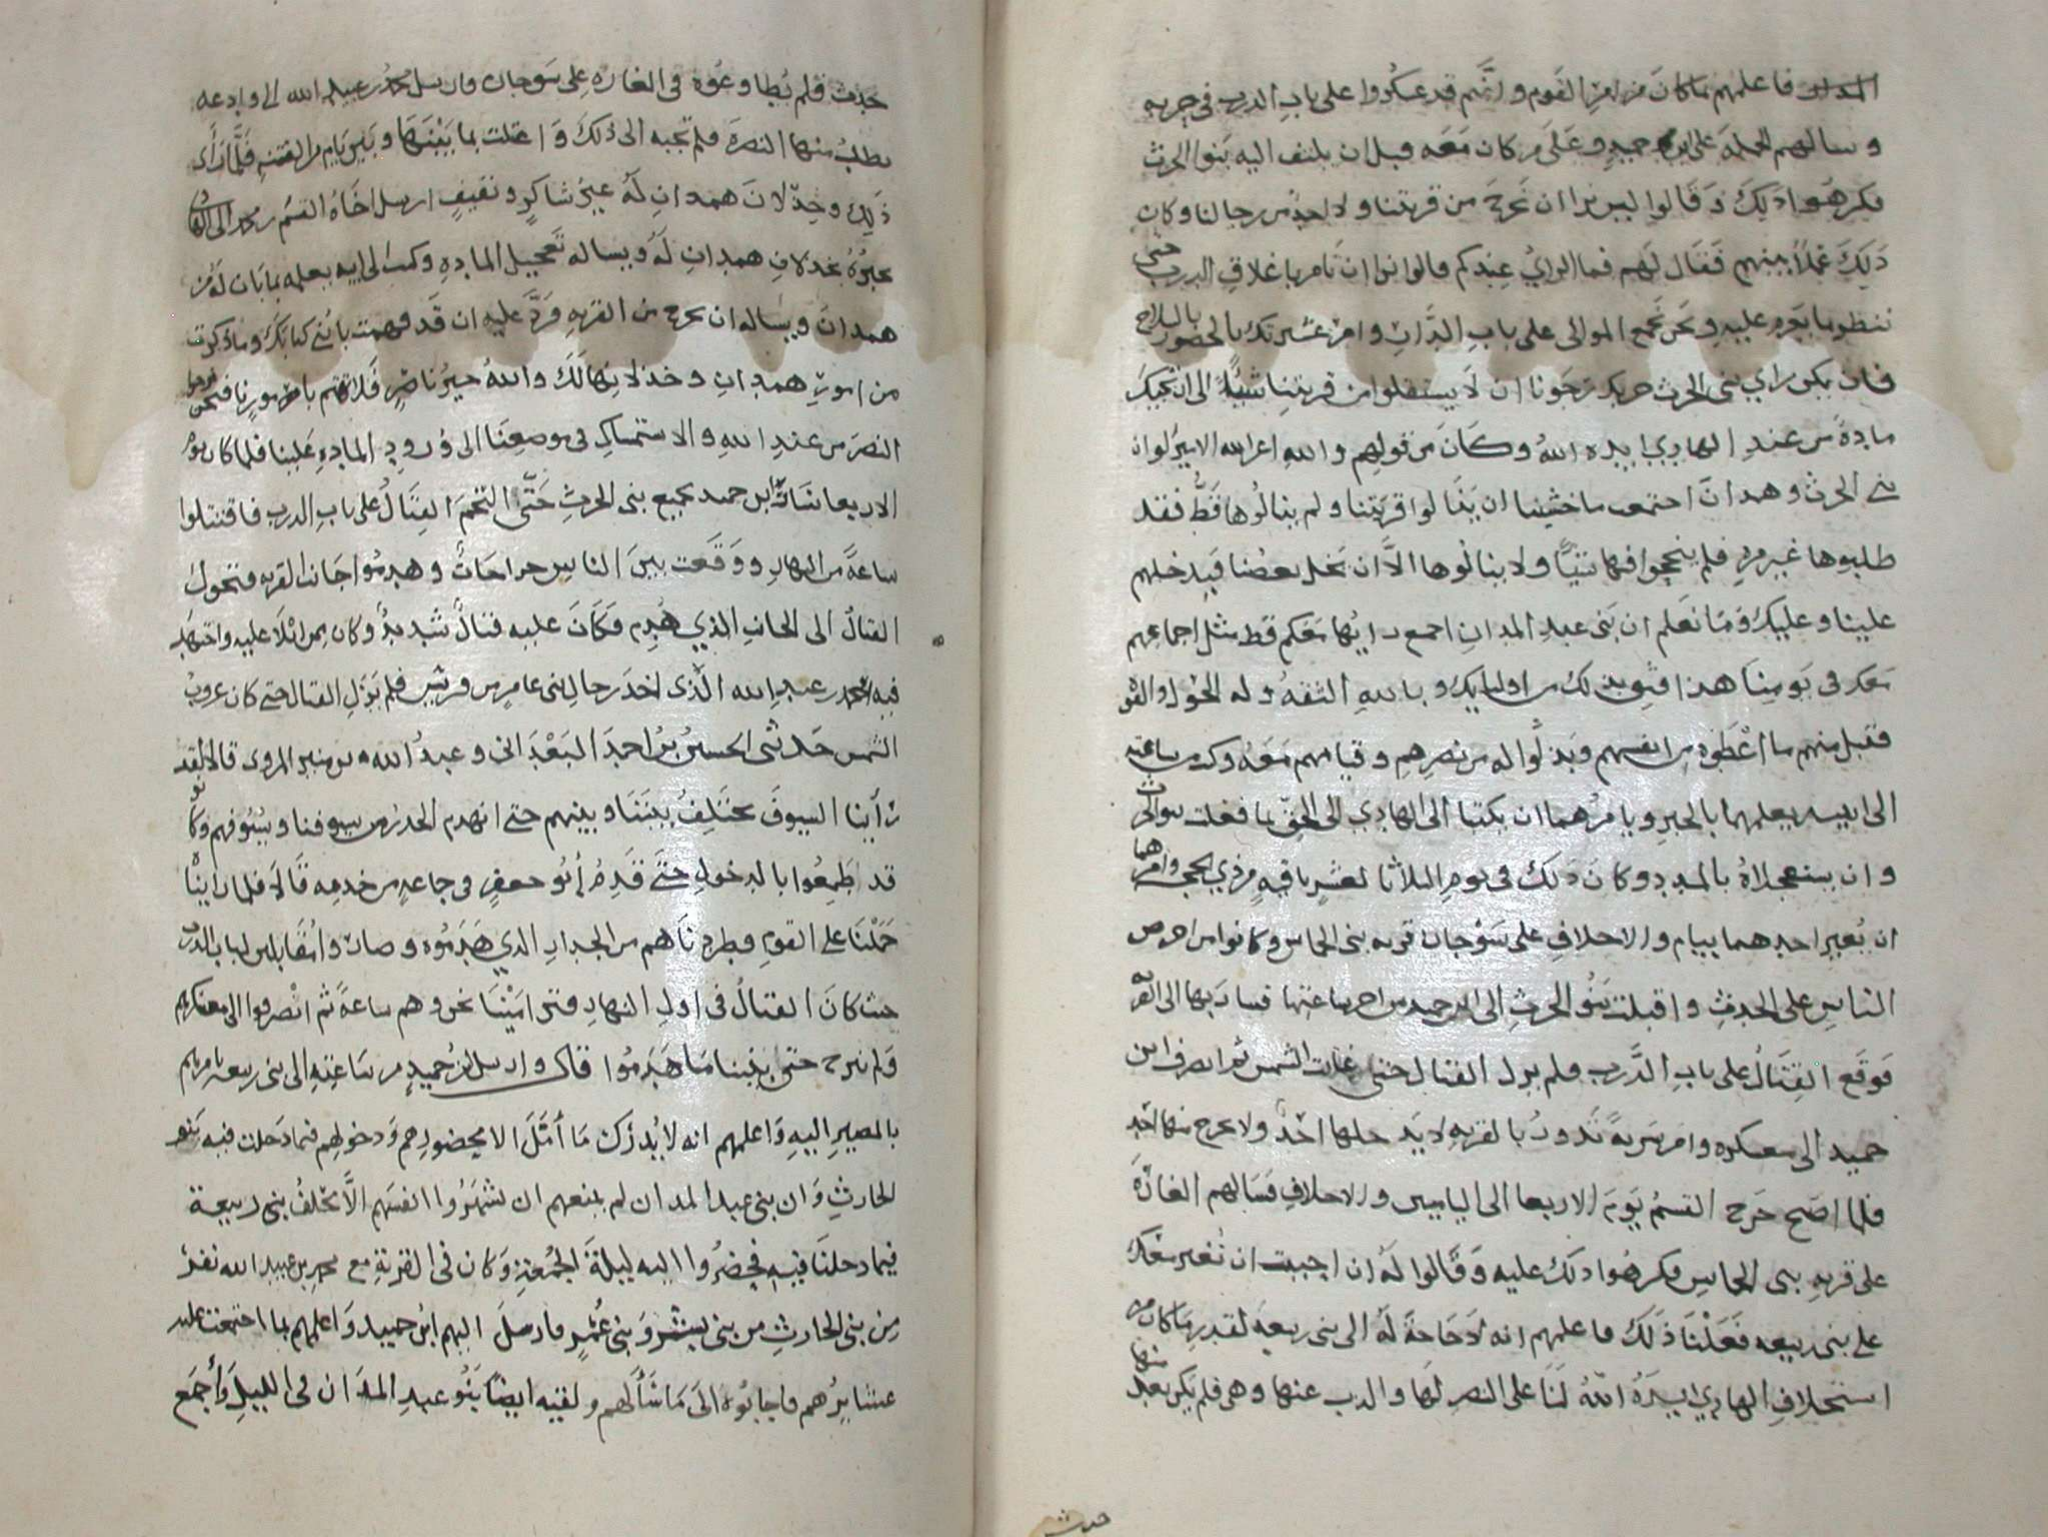 المدان فاعلمهم بما كان من امر القوم وانهم قد عسكروا على باب الدرب في حربه
وسالهم الحمله على ابن حميد وعلى من كان معه قبل ان يلتف اليه بنو الحرث
فكرهوا ذلك وقالوا ليس نرا ان نخرج من قريتنا ولا احد من رجالنا وكان
ذلك عملا بينهم فقال لهم فما الراي عندكم قالوا نرا ان تامر باغلاق الدرب حتى
ننظر ما يعزم عليه ونحن نجمع الموالى على باب الدرب وامر عشيرتك بالحضور بالسلاح
فان يكن راي بني الحرث حربك رجونا ان لا يستقلوا من قريتنا شيئا الى ان تجيك
مادة من عند الهادي ايده الله وكان من قولهم والله اعز الله الامير لو ان
بني الحرث وهمدان اجتمعت ما خشينا ان ينالوا قريتنا ولم ينالوها قط فقد
طلبوها غير مرة فلم ينجحوا فيها شيا ولا ينالوها الا ان يختل بعضنا فيدخلهم
علينا وعليك وما نعلم ان بني عبد المدان اجمع رايها معكم قط مثل اجماعهم
معك في يومنا هذا فثق بذلك من اوليايك وبالله الثقة وله الحول والقوة
فقبل منهم ما اعطوه من انفسهم وبذلوا له من نصرهم وقيامهم معه وكتب ساعته
الى ابنيه يعلمهما بالخبر ويامرهما ان يكتبا الى الهادي الى الحق بما فعلت بنو الحرث
وان يستعجلاه بالمدد وكان ذلك في يوم الثلاثا لعشر باقيه من ذي الحجه وامرهما
ان يغير احدهما بيام والاحلاف على سوحان قريه بني الحماس وكانوا من احرص
الناس على الحدث واقبلت بنو الحرث الى ابن حميد من اخر ساعتها فسار بها الى القرية
فوقع القتال على باب الدرب فلم يزل القتال حتى غابت الشمس ثم انصرف ابن
حميد الى معسكره وامر سرية تدور بالقريه لا يدخلها احد ولا يخرج منها احد
فلما اصبح خرج القسم يوم الاربعا الى الياميين والاحلاف فسالهم الغارة
على قريه بني الحماس فكرهوا ذلك عليه وقالوا له ان احببت ان نغير معك
على بني ربيعه فعلنا ذلك فاعلمهم انه لا حاجة له الى بني ربيعة لقدر ما كان من
استحلاف الهادي ايده الله لنا على النصر لها والذب عنها وهي فلم يكن بعد منها
حدث
حدث فلم يطاوعوه في الغاره على سوحان وارسل محمد بن عبيد الله الى وادعه
يطلب منها النصرة فلم تجبه الى ذلك واعتلت بما بينها وبين يام من الفتنه فلما راى
ذلك وخذلان همدان له غير شاكر وثقيف ارسل اخاه القسم بن محمد الى الهادي
يخبره بخذلان همدان له ويساله تعجيل الماده وكتب الى ابيه يعلمه بما بان له من
همدان ويساله ان يخرج من القريه فرد عليه ان قد فهمت يا بني كتابك وما ذكرت
من امور همدان وخذلانها لك والله خير ناصر فلا تهتم بامورنا فنحن نرجوا
النصر من عند الله والاستمساك في موضعنا الى ورود المادة علينا فلما كان يوم
الاربعا سار ابن حميد بجميع بني الحرث حتى التحم القتال على باب الدرب فاقتتلوا
ساعة من النهار ووقعت بين الناس جراحات وهدموا جانب القريه فتحول
القتال الى الجانب الذي هدم فكان عليه قتال شديد وكان ممن ابلا عليه واجتهد
فيه محمد بن عبد الله الذى اخذ رجال بني عامر من قريش فلم يزل القتال حتى كان غروب
الشمس حدثني الحسين بن احمد البغدادي وعبد الله بن منير المروي قالا لقد
راينا السيوف تختلف بيننا وبينهم حتى انهدم الجدار من سيوفنا وسيوفهم وكانوا
قد طمعوا بالدخول حتى قدم أبو جعفر في جماعة من خدمه قالا فلما راينا
حملنا على القوم فطردناهم من الجدار الذي هدموه وصاروا مقابلين لباب الدرب
حيث كان القتال في اول النهار فترامينا نحن وهم ساعة ثم انصرفوا الى معسكرهم
ولم نبرح حتى بنينا ما هدموا قال وارسل ابن حميد من ساعته الى بني ربيعه يامرهم
بالمصير اليه واعلمهم انه لا يدرك ما أمل الا بحضورهم ودخولهم فيما دخلت فيه بنو
الحارث وان بني عبد المدان لم يمنعهم ان يشهروا انفسهم الا تخلف بني ربيعة
فيما دخلنا فيه فحضروا اليه ليلة الجمعة وكان في القرية مع محمد بن عبيد الله نفر
من بني الحارث من بني بشر وبني عمير فارسل اليهم ابن حميد واعلمهم بما اجتمعت عليه
عشايرهم فاجابوه الى ما سألهم ولقيه ايضا بنو عبد المدان في الليل وأجمع